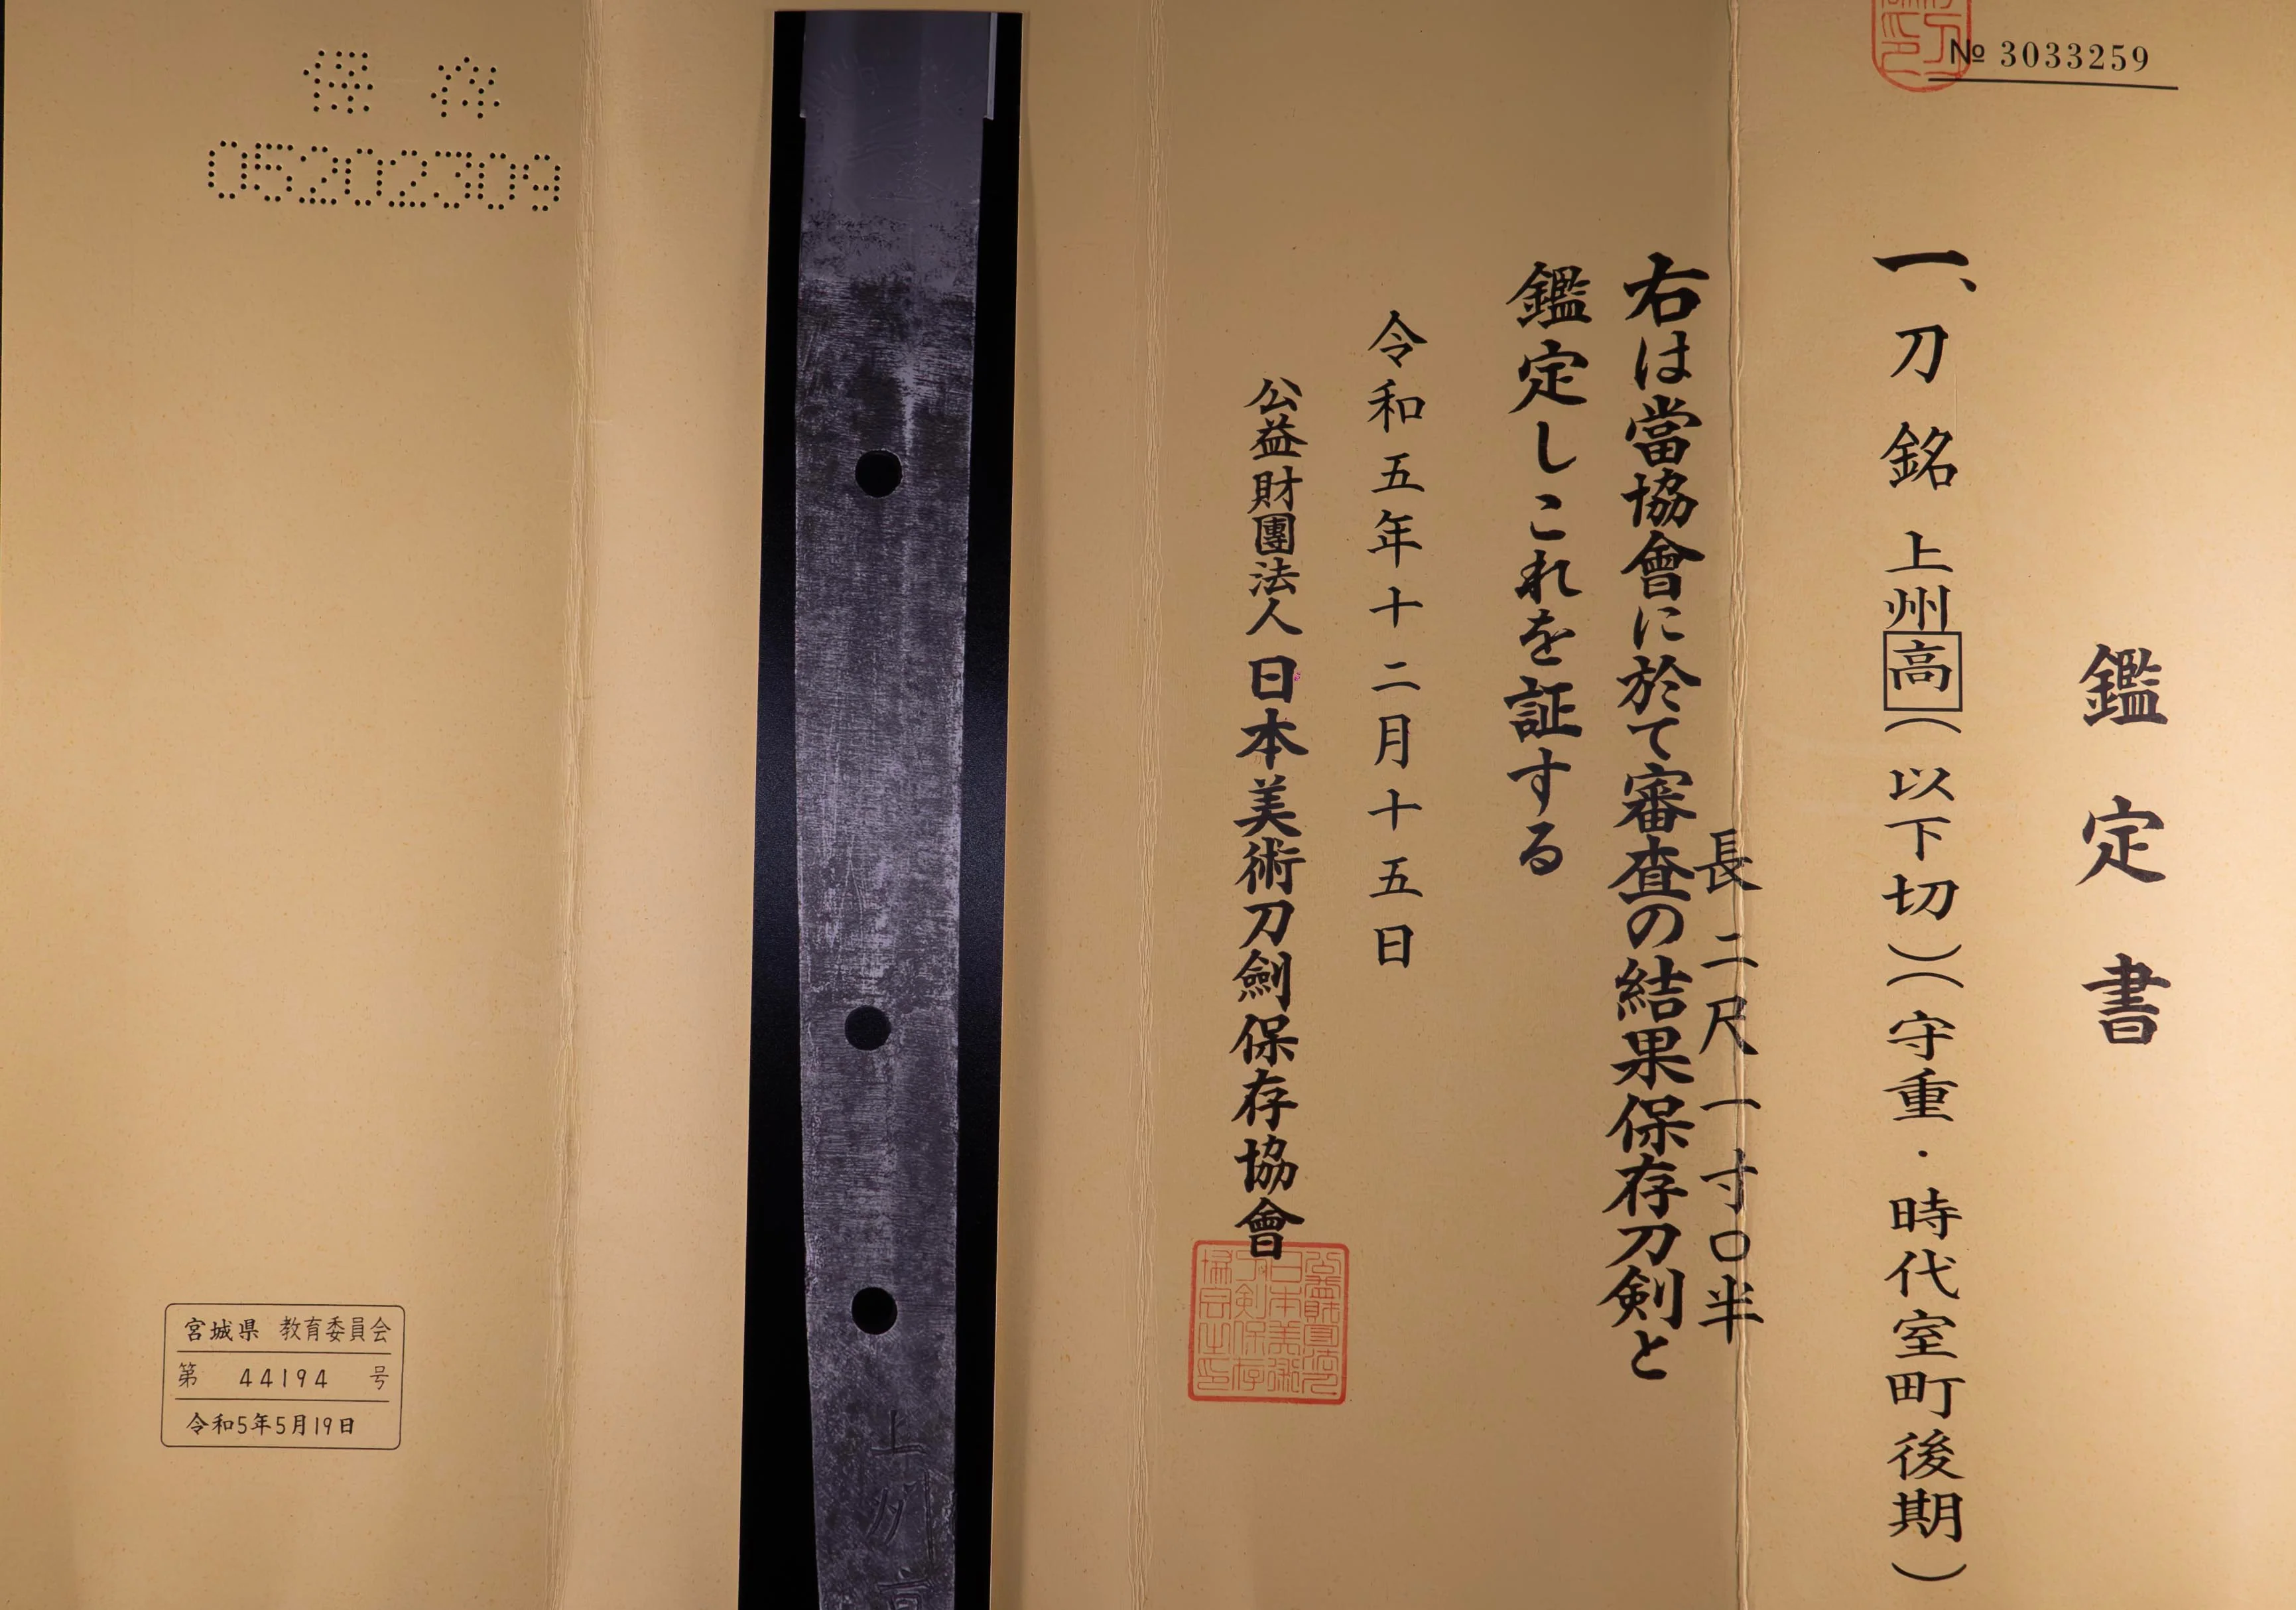 № 3033259
鑑定書
一、刀 銘 上州高(以下切)(守重・時代室町後期)
長 二尺一寸〇半
右は當協會に於て審査の結果保存刀剣と
鑑定しこれを証する
令和五年十二月十五日
公益財團法人 日本美術刀劍保存協會
上州高
保存
05202309
宮城県 教育委員会
第 44194 号
令和5年5月19日